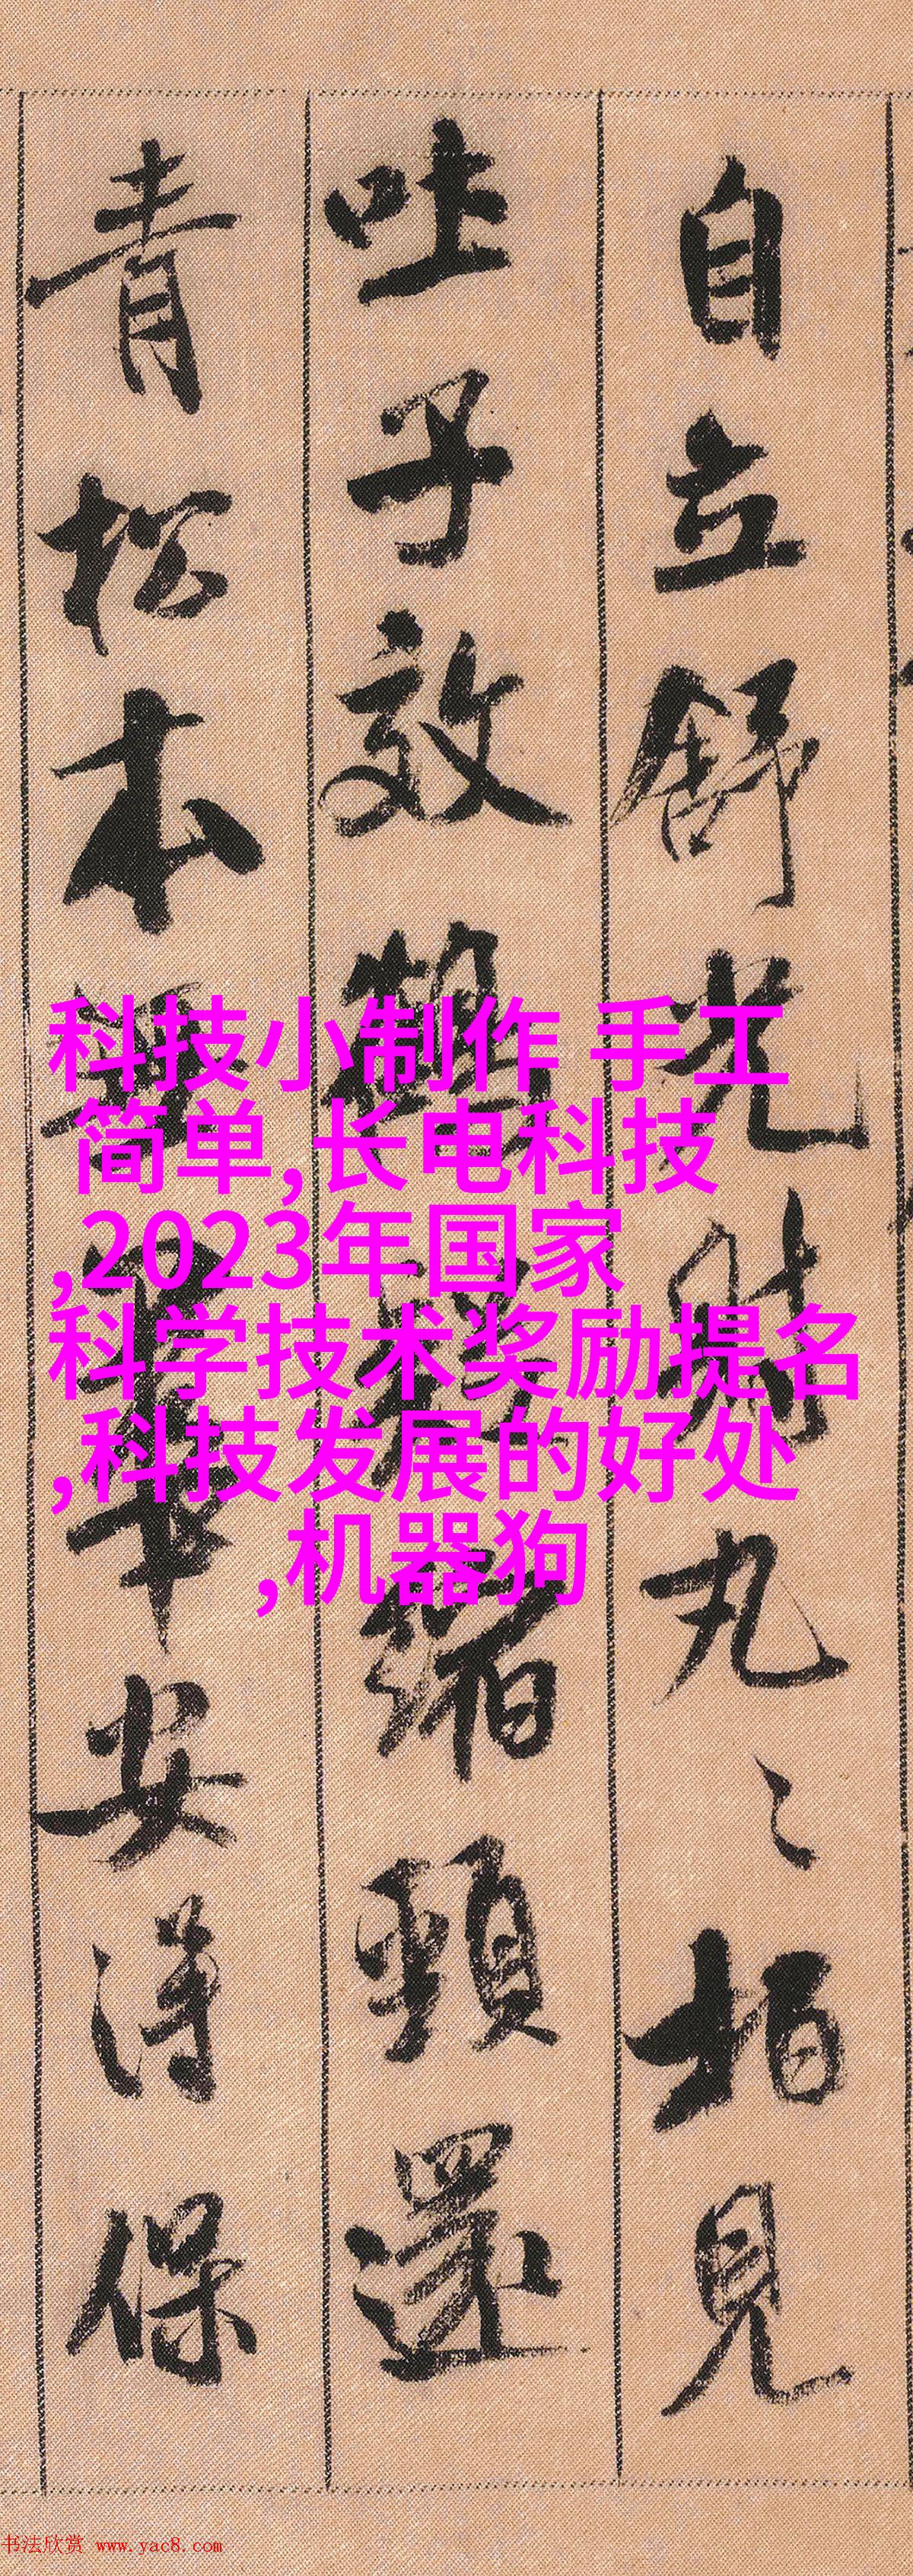 自立舒光射丸〻柏見
吐子效鶴疑縮頸還
青松本無華安得保
科技小制作 手工
简单,长电科技
,2023年国家
科学技术奖励提名
,科技发展的好处
,机器狗
书法欣赏 www.yac8.com